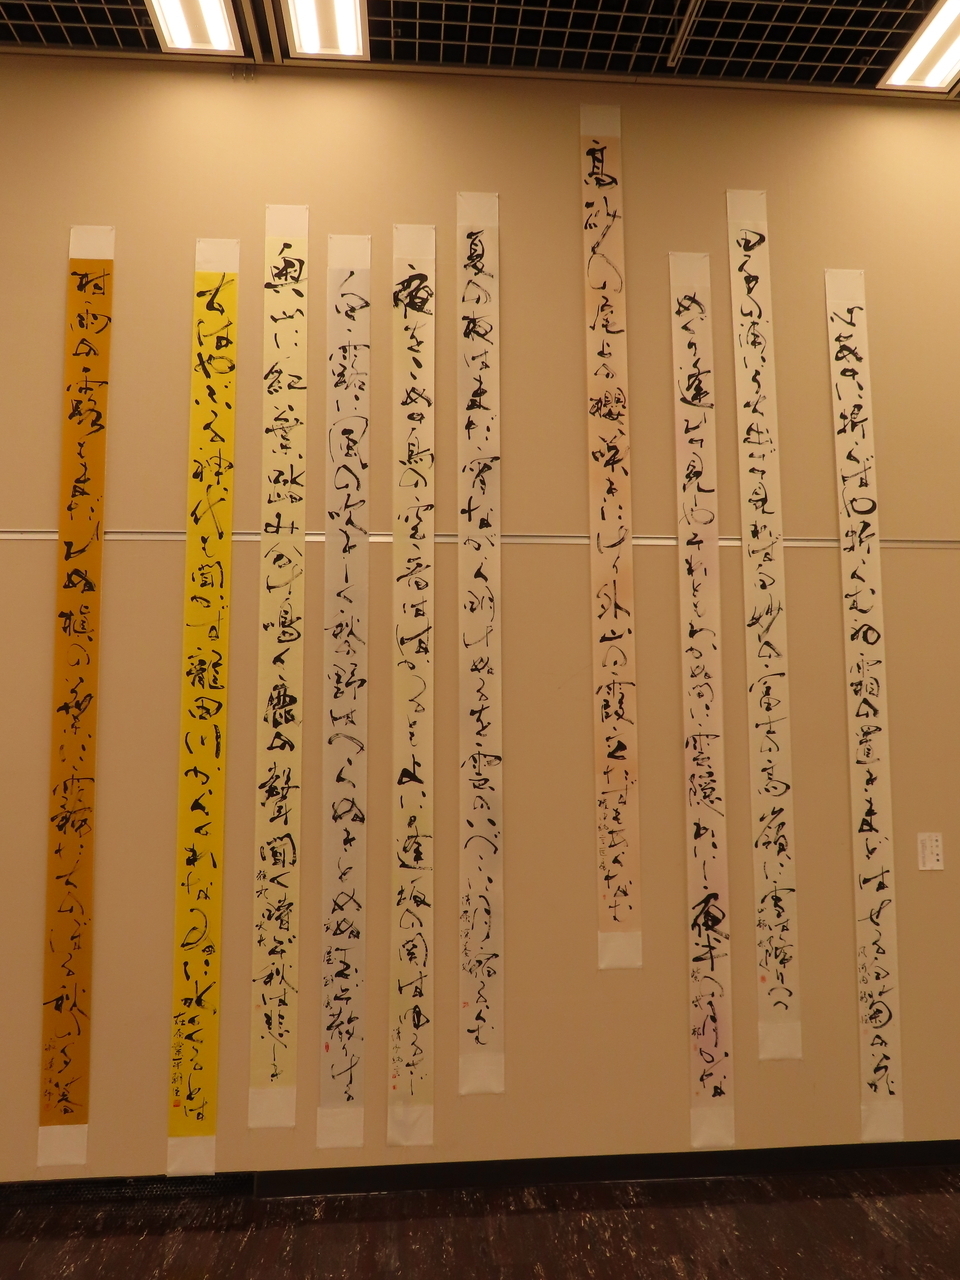 心あてに折らばや折らむ初霜の置きまどはせる白菊の花
凡河内躬恒
田子の浦にうち出でて見れば白妙の富士の高嶺に雪は降りつつ
めぐり逢ひて見しやそれともわかぬ間に雲隠れにし夜半の月かな
紫式部
高砂の尾上の櫻咲きにけり外山の霞立たずもあらなむ
権中納言匡房
夏の夜はまだ宵ながら明けぬるを雲のいづこに月宿るらむ
清原深養父
夜をこめて鳥の空音ははかるともよに逢坂の関はゆるさじ
清少納言
白露に風の吹きしく秋の野はつらぬきとめぬ玉ぞ散りける
文屋朝康
奥山に紅葉踏み分け鳴く鹿の聲聞く時ぞ秋は悲しき
猿丸大夫
ちはやぶる神代も聞かず龍田川からくれなゐに水くくるとは
在原業平朝臣
村雨の露もまだひぬ槇の葉に霧たちのぼる秋の夕暮
寂蓮法師